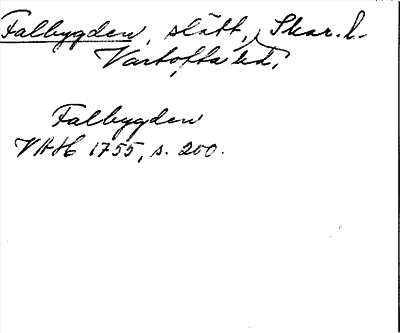 Falbygden, slätt, Skar. l.
Vartofta hd.
Falbygden
VHH 1755, s. 200.